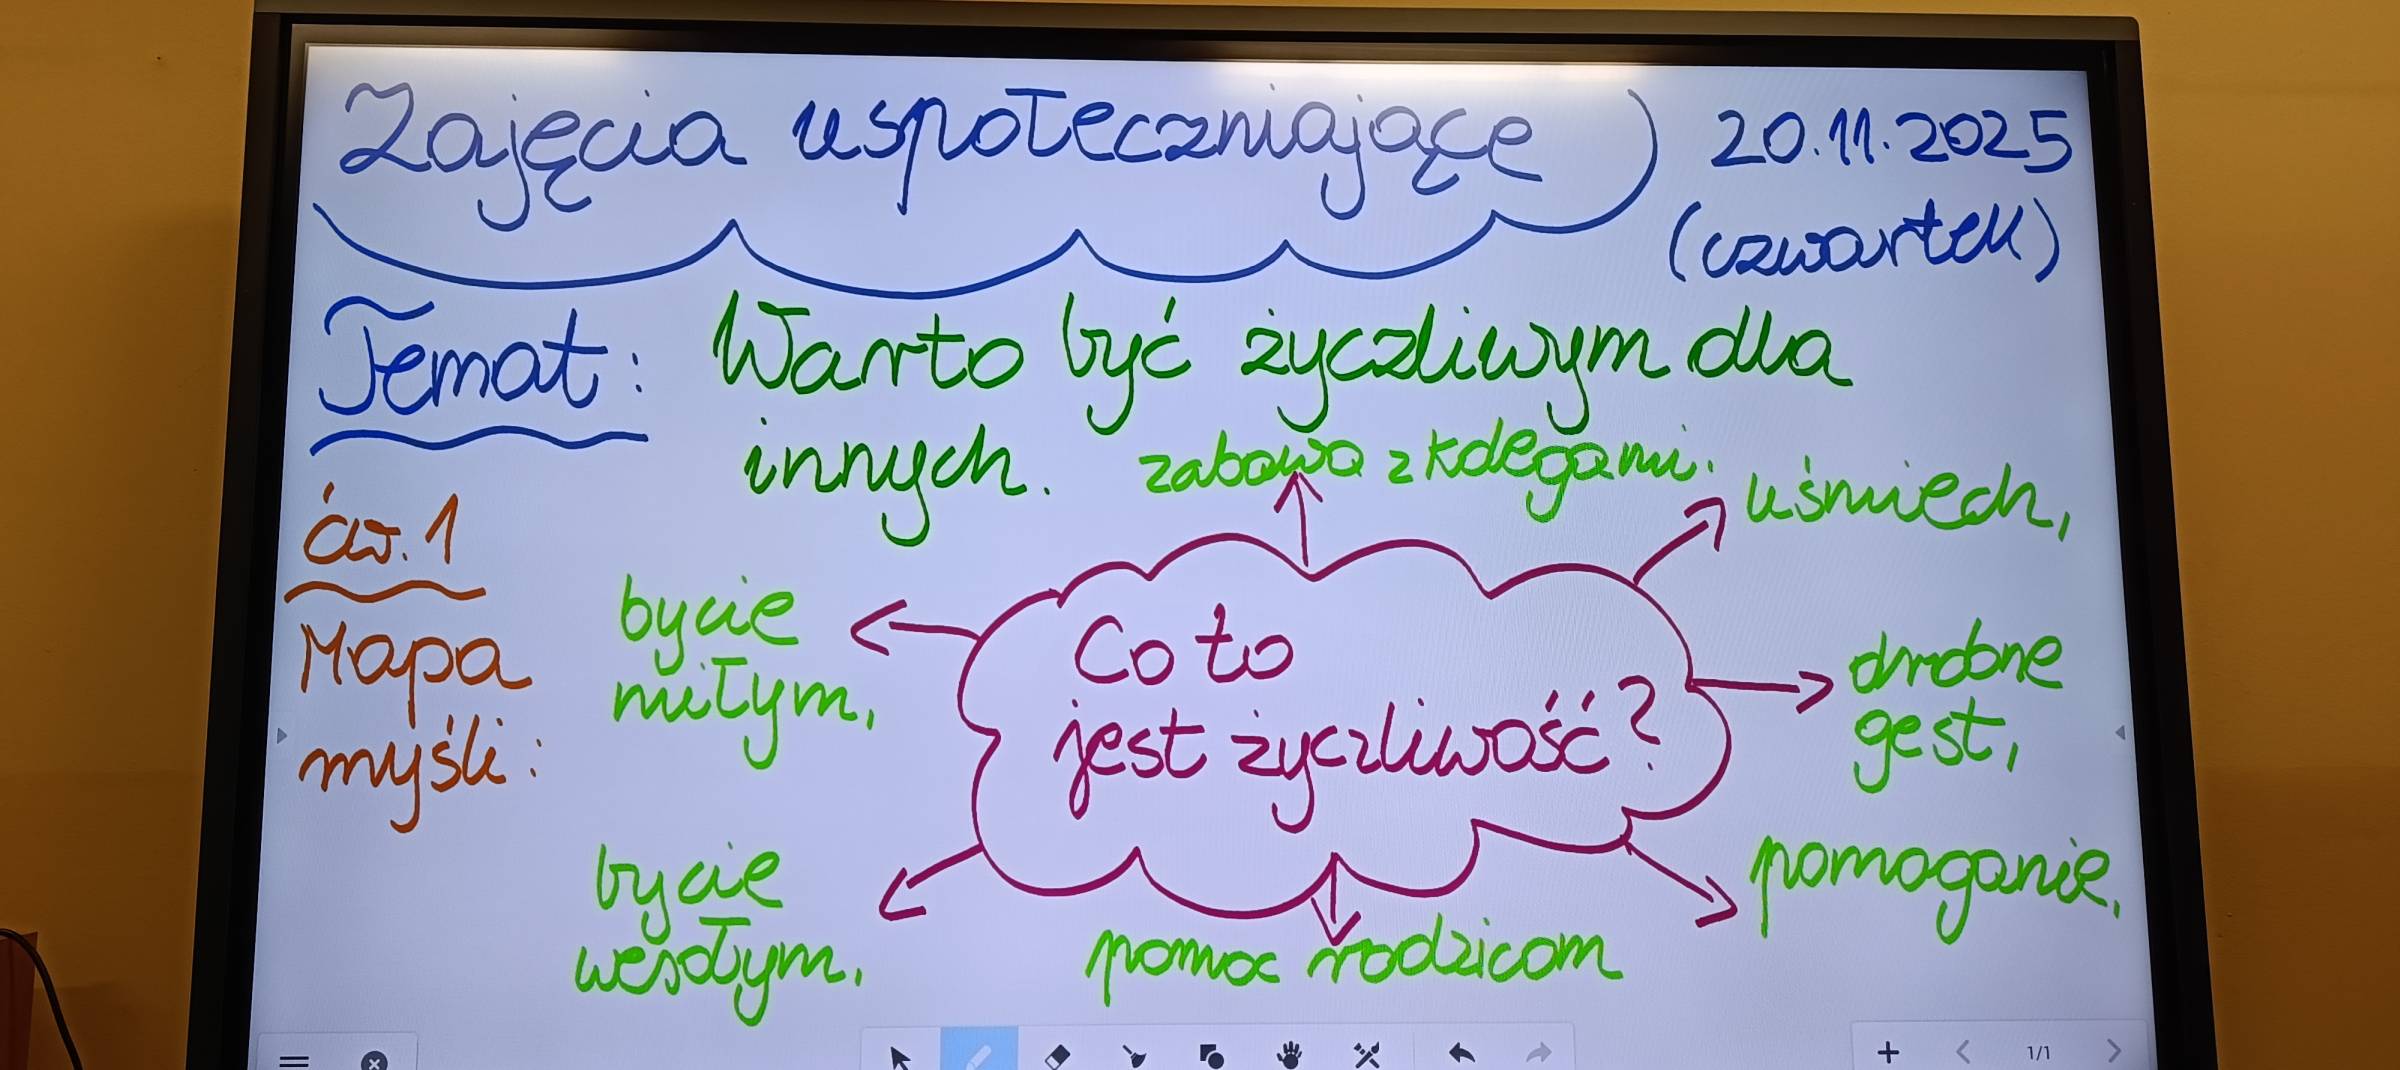 Zajęcia uspołeczniające
20.11.2025
(czwartek)
Temat: Warto być życzliwym dla
innych.
zabawa z kolegami.
uśmiech,
ćw. 1
Mapa
myśli:
bycie
miłym,
Co to
jest życzliwość?
drobne
gest,
bycie
wesołym,
pomoc rodzicom
pomaganie,
1/1